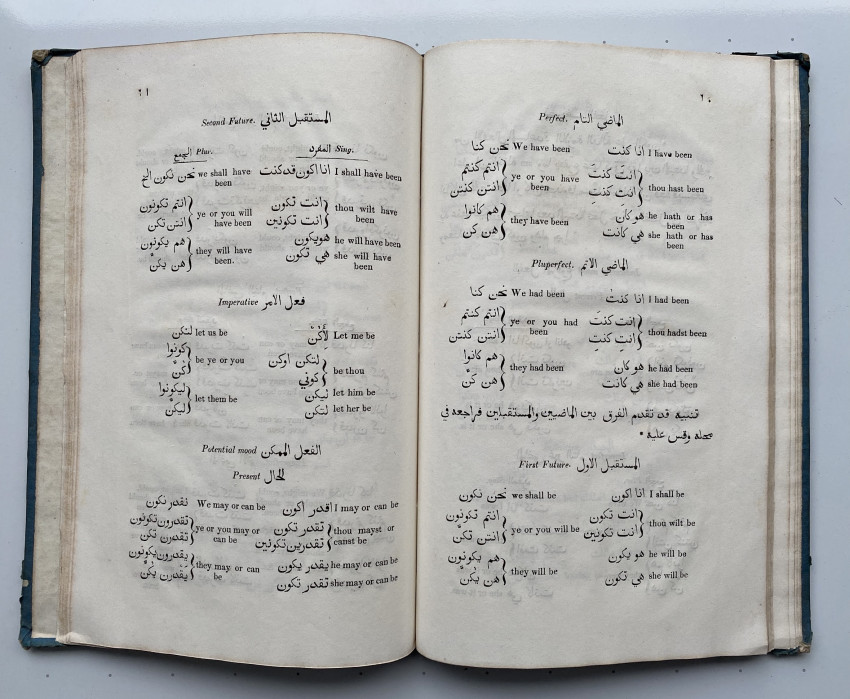 ١٠
Perfect. الماضي التام
انا كنت I have been نحن كنا We have been
انتَ كنتَ
انتِ كنتِ thou hast been
انتم كنتم
انتن كنتن ye or you have been
هو كان he hath or has been
هي كانت she hath or has been
هم كانوا
هن كن they have been
Pluperfect. الماضي الاتم
انا كنت I had been نحن كنا We had been
انت كنتَ
انتِ كنتِ thou hadst been
انتم كنتم
انتن كنتن ye or you had been
هو كان he had been
هي كانت she had been
هم كانوا
هن كنَّ they had been
تنبيه قد تقدم الفرق بين الماضيين والمستقبلين فراجعه في
محله وقس عليه •
First Future. المستقبل الاول
انا اكون I shall be نحن نكون we shall be
انت تكون
انت تكونين thou wilt be
انتم تكونون
انتن تكن ye or you will be
هو يكون he will be
هي تكون she will be
هم يكونون
هن يكنَّ they will be
١١
Second Future. المستقبل الثاني
المفرد Sing. الجمع Plur.
انا اكون قد كنت I shall have been نحن نكون الخ we shall have been
انت تكون
انت تكونين thou wilt have been
انتم تكونون
انتن تكن ye or you will have been
هو يكون he will have been
هي تكون she will have been
هم يكونون
هن يكنَّ they will have been.
Imperative فعل الامر
لِأَكُنْ Let me be لنكن let us be
لتكن اوكن
كوني be thou
كونوا
كُنَّ be ye or you
ليكن let him be
لتكن let her be
ليكونوا
ليكنَّ let them be
Potential mood الفعل الممكن
Present لحال
اقدر اكون I may or can be نقدر نكون We may or can be
تقدر تكون
تقدرين تكونين thou mayst or canst be
تقدرون تكونون
تقدرن تكن ye or you may or can be
يقدر يكون he may or can be
تقدر تكون she may or can be
يقدرون يكونون
يقدرن يكنَّ they may or can be